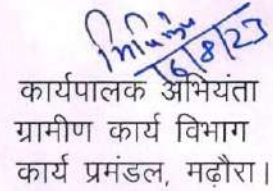 16/8/23
कार्यपालक अभियंता
ग्रामीण कार्य विभाग
कार्य प्रमंडल, मढ़ौरा।